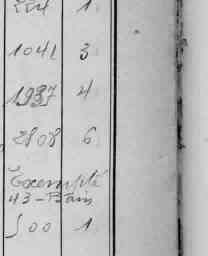 1041 3
1937 4
2808 6
Exemple
43-Bain
500 1